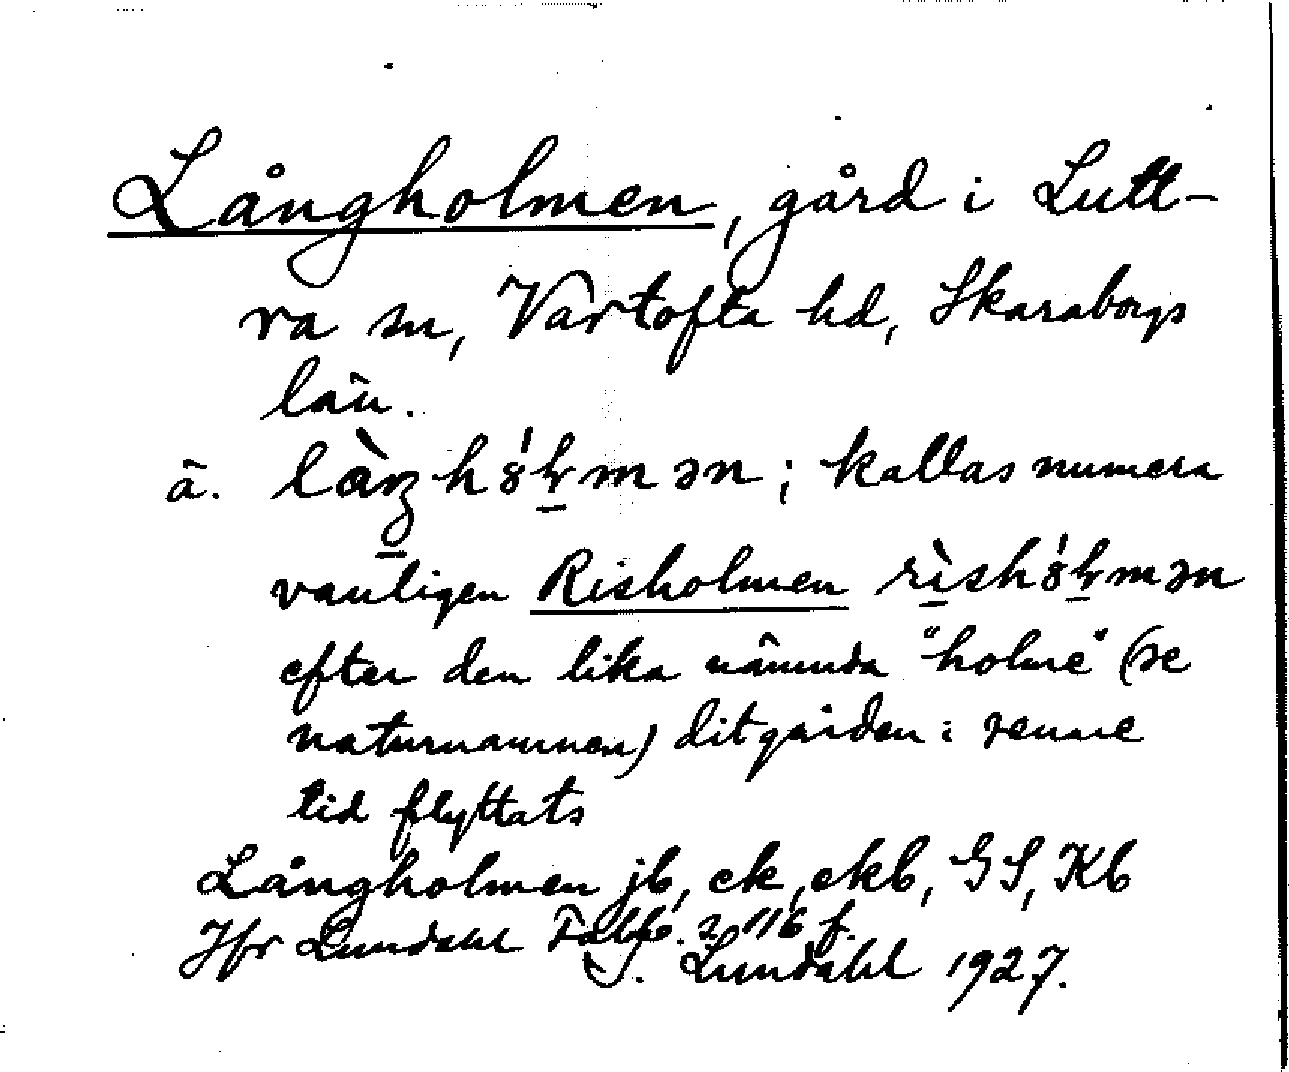 Långholmen, gård i Lutt-
ra sn, Vartofta hd, Skaraborgs
län.
ä. kallas numera
vanligen Risholmen
efter den lika nämnda "holme" (se
naturnamnen) dit gården i senare
tid flyttats
Långholmen jb, ek, ekb, GS, Kb
Jfr Lundahl Falbp. 2 116 f.
J. Lundahl 1927.